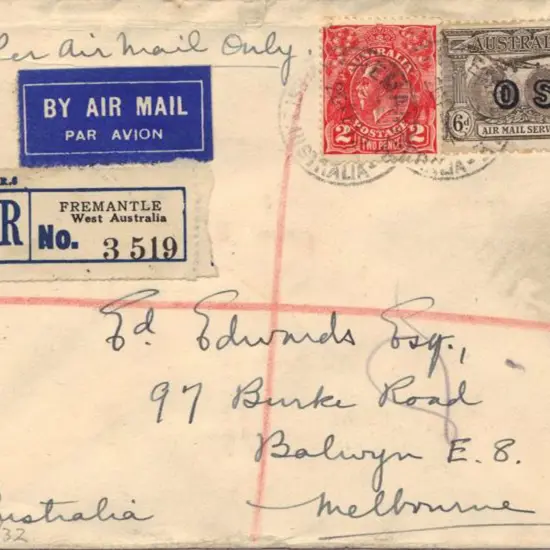 Per Air Mail Only.
BY AIR MAIL
PAR AVION
AUSTRALIA
2 2
POSTAGE
TWO PENCE
AUSTRAL
OS
6d
AIR MAIL SERV
AUSTRALIA
R.6
R
FREMANTLE
West Australia
No. 3519
Ed Edwards Esq.,
97 Burke Road
Balwyn E. 8.
Melbourne
Australia
32